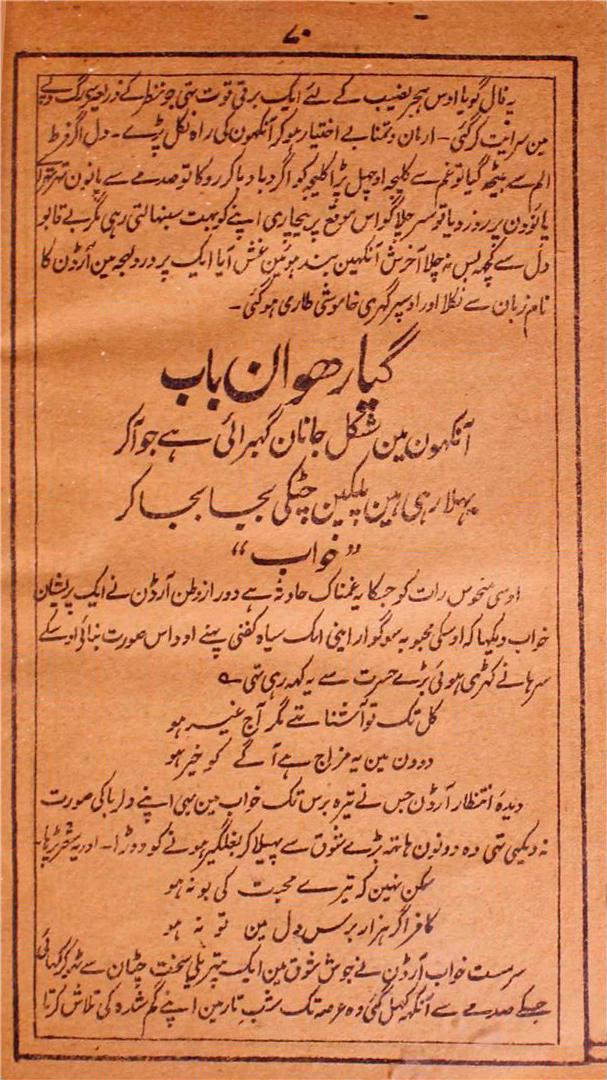 ۷۰
یہ فال گویا اوس ہجر نصیب کے لئے ایک برقی قوت تہی جو نظر کے ذریعہ رگ و پے
مین سرایت کر گئی۔ ارمان و تمنا بے اختیار ہو کر آنکہون کی راہ نکل پڑے۔ دل اگر فرط
الم سے بیٹھ گیا تو غم سے کلیجہ اوچہل پڑا کلیجہ کو اگر دبا دبا کر روکا تو صدمے سے پانون تہر تہرائے
پانوٴن پر زور دیا تو سر چلا گو اس موقع پر بیچاری اپنے کو بہت سنبہالتی رہی مگر بے قابو
دل سے کچہ بس نہ چلا آخرش آنکہین بند ہوئین غش آیا ایک پر درد لہجہ مین آرڈن کا
نام زبان سے نکلا اور اوسپر گہری خاموشی طاری ہو گئی۔
گیارھوان باب
آنکہون مین شکل جانان گہبرائی ہے جو آ کر
بہلا رہی ہین پلکین چٹکی بجا بجا کر
”خواب“
اوسی منحوس رات کو جسکا یہ غمناک حادثہ ہے دور از وطن آرڈن نے ایک پریشان
خواب دیکہا کہ اوسکی محبوبہ سوگوار اینی ایک سیاہ کفنی پہنے اوداس صورت بنائی اوسکے
سرہانے کہڑی ہوئی بڑے حسرت سے یہ کہہ رہی تہی ؎
کل تک تو آشنا تہے مگر آج غیر ہو
دو دن مین یہ مزاج ہے آگے کو خیر ہو
دیدہٴ انتظار آرڈن جس نے تیرہ برس تک خواب مین بہی اپنے دلربا کی صورت
نہ دیکہی تہی وہ دونون ہاتہ بڑے شوق سے پہیلا کر بغلگیر ہونے کو دوڑا۔ اور یہ شعر پڑہا۔
ممکن نہین کہ تیرے محبت کی بو نہ ہو
کافر اگر ہزار برس دل مین تو نہ ہو
سرمست خواب آرڈن نے جوش شوق مین ایک پتہریلی سخت چٹان سے ٹہوکر کہائی
جسکے صدمے سے آنکہہ کہل گئی وہ عرصہ تک شب تار مین اپنے گم شدہ کی تلاش کرتا